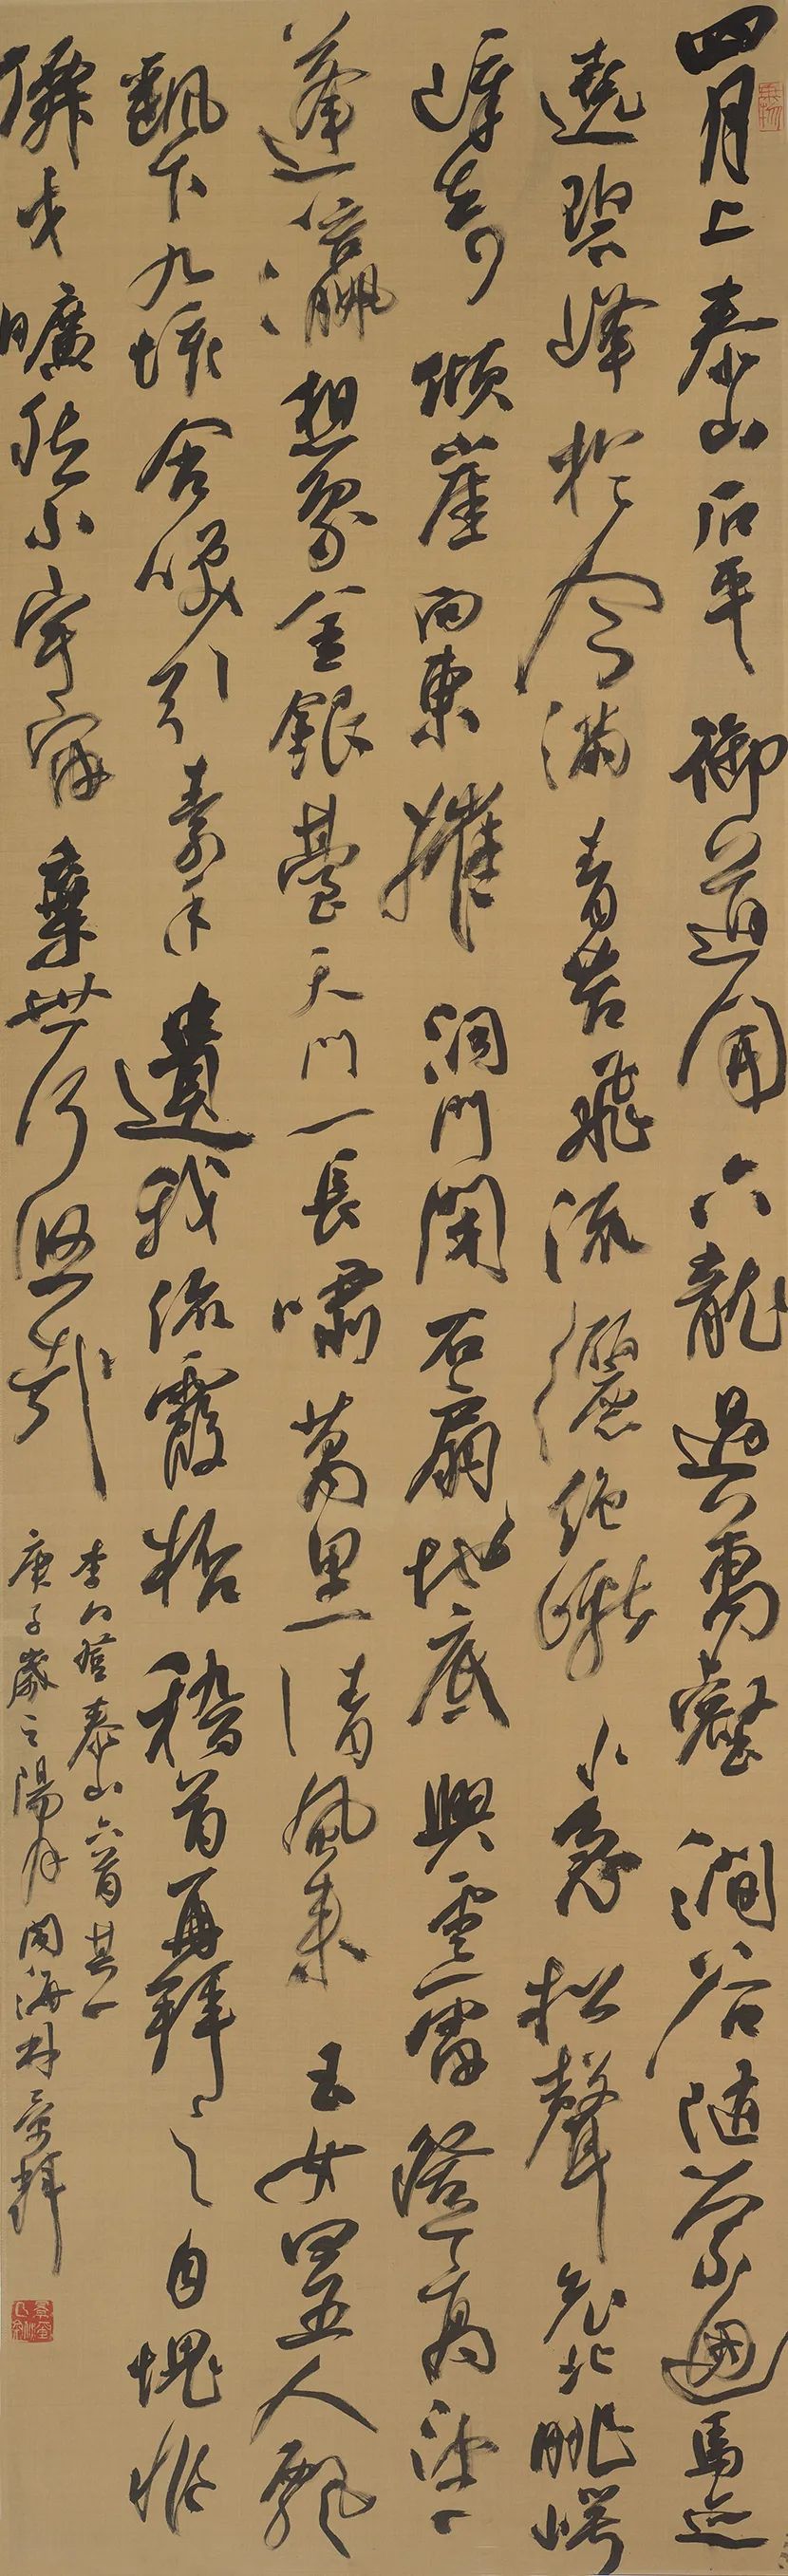 四月上泰山石平御道開六龍過萬壑澗谷隨縈迴馬迹
遶碧峰於今滿青苔飛流灑絕巘水急松聲哀北眺崿
嶂奇傾崖向東摧洞門閉石扇地底興雲雷登高望
蓬瀛想象金銀臺天門一長嘯萬里清風來玉女四五人飄
颻下九垓含笑引素手遺我流霞杯稽首再拜之自愧非
僊才曠然小宇宙棄世何悠哉
李白登泰山六首其一
庚子歲之陽月閩海林景輝